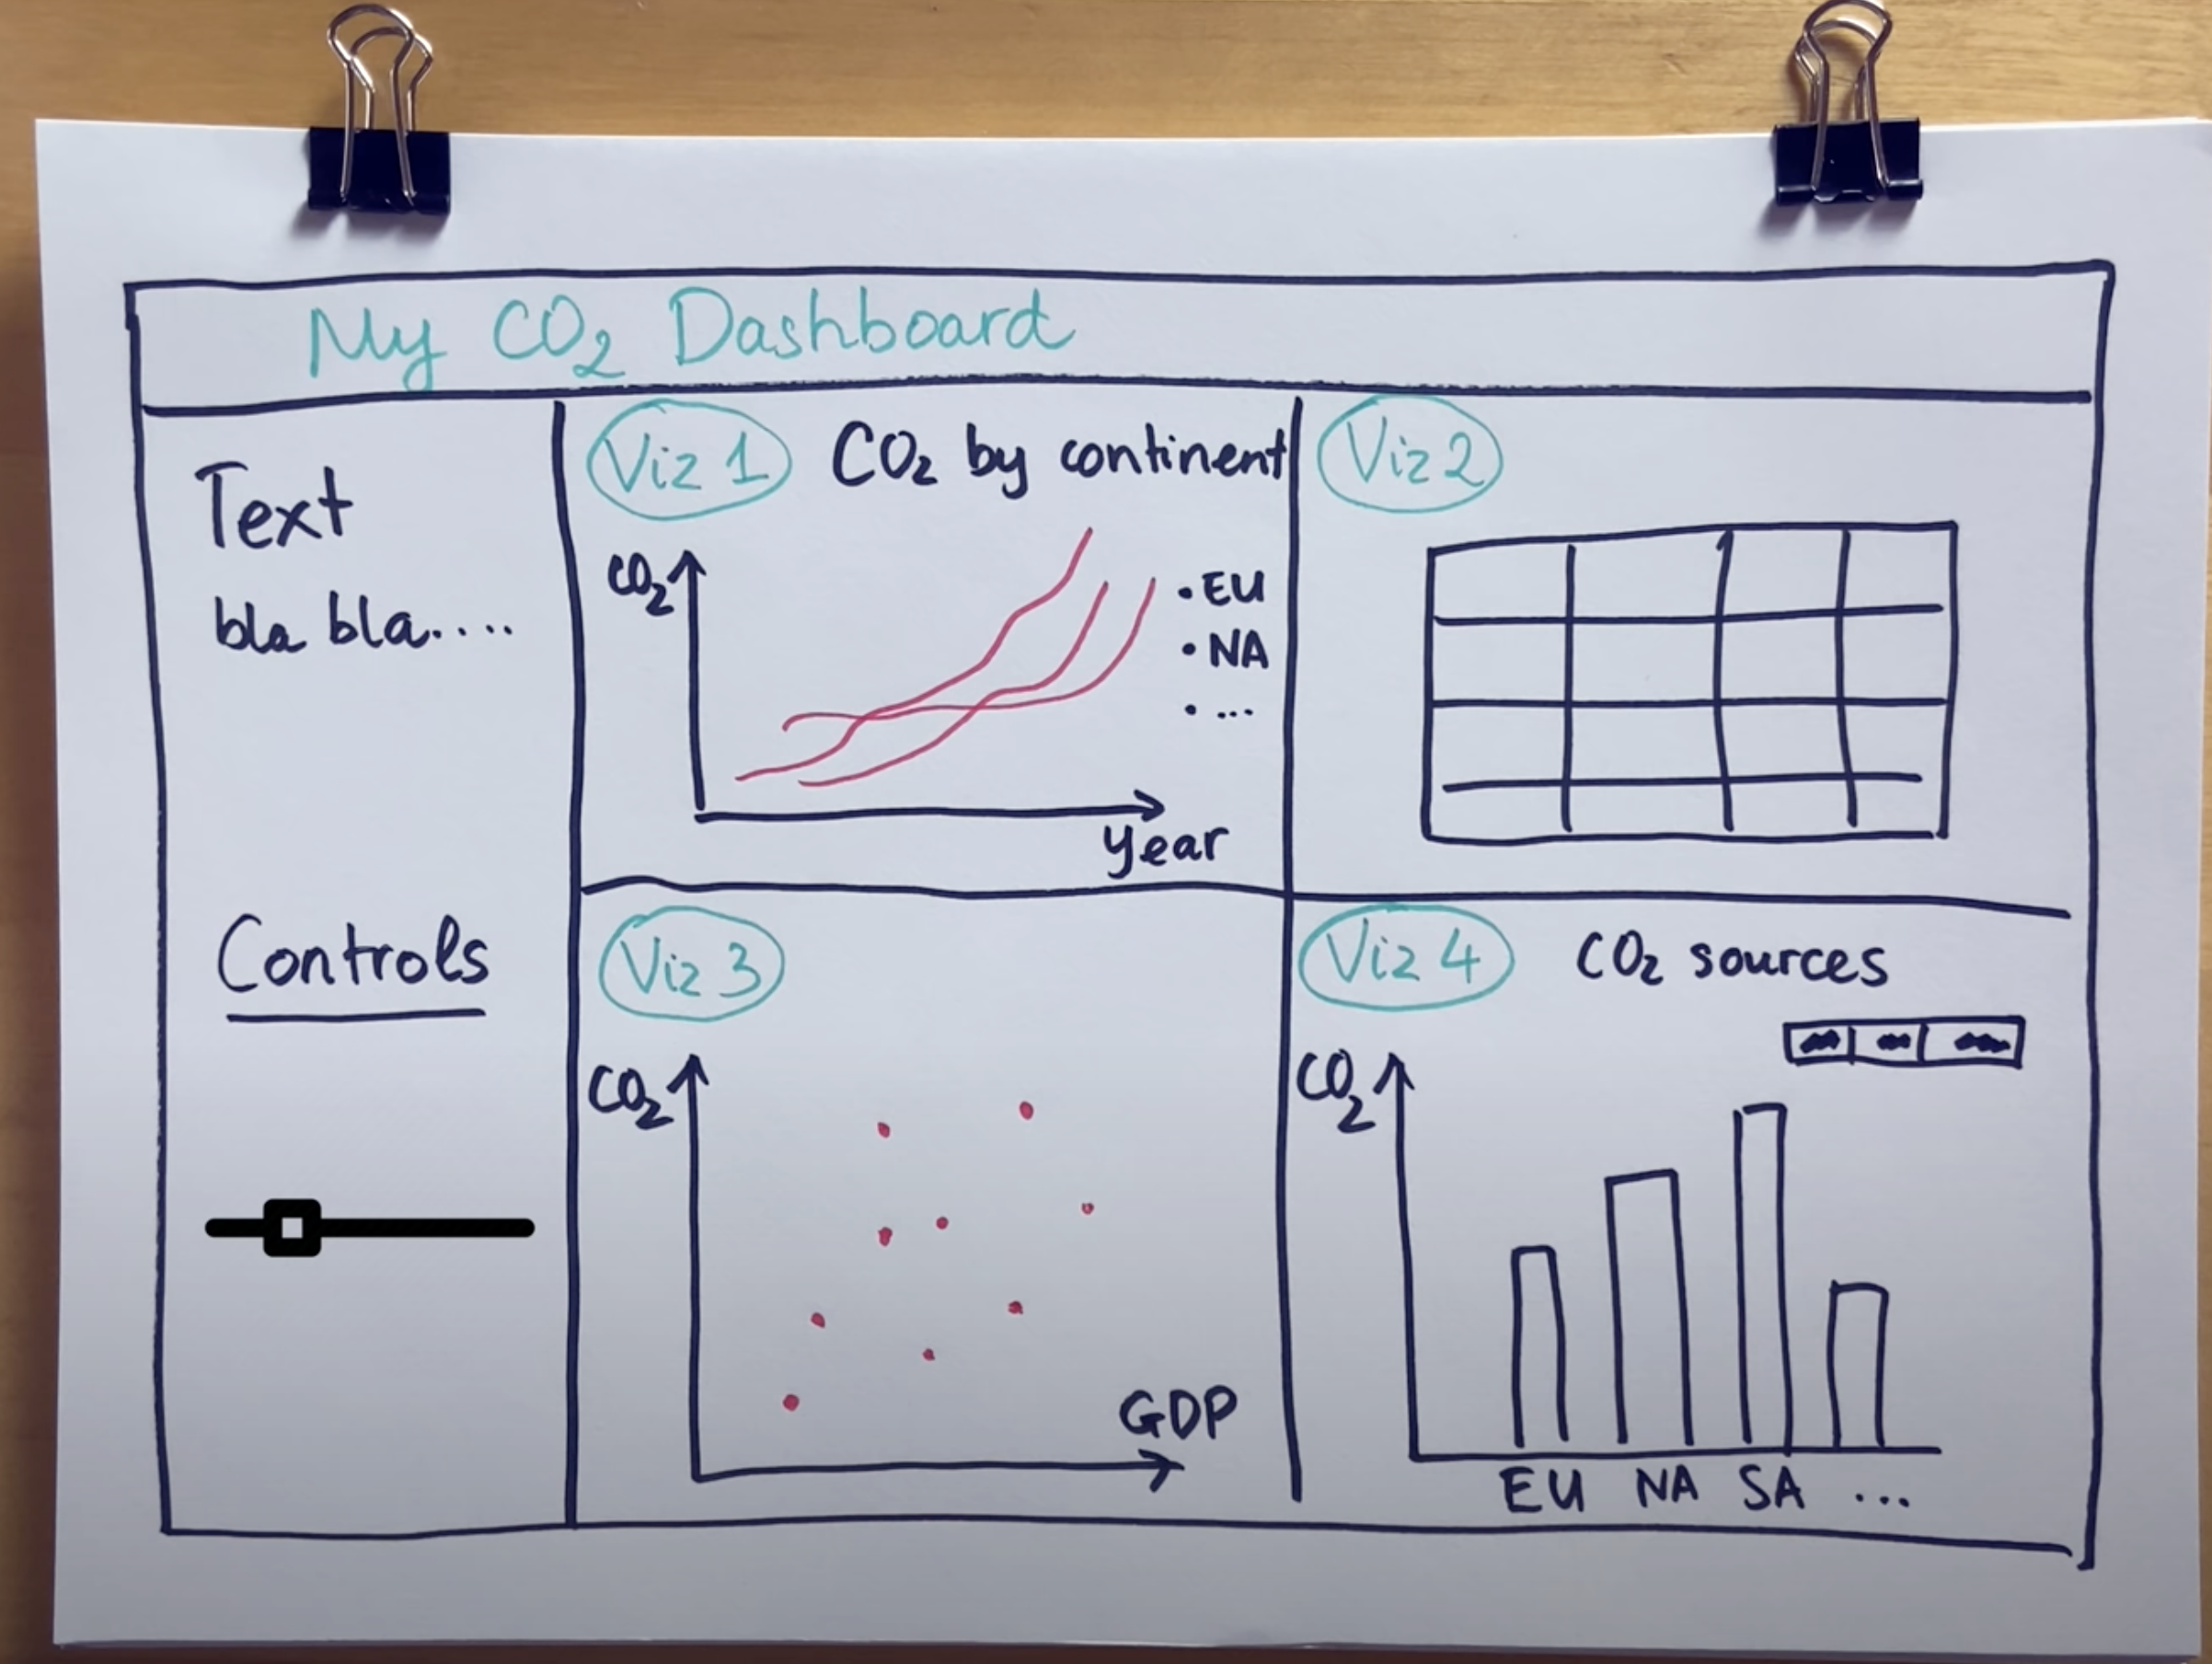 My CO₂ Dashboard
Text
bla bla....
Controls
Viz 1 CO₂ by continent
CO₂
• EU
• NA
• ...
Year
Viz 2
Viz 3
CO₂
GDP
Viz 4 CO₂ sources
CO₂
EU NA SA ...